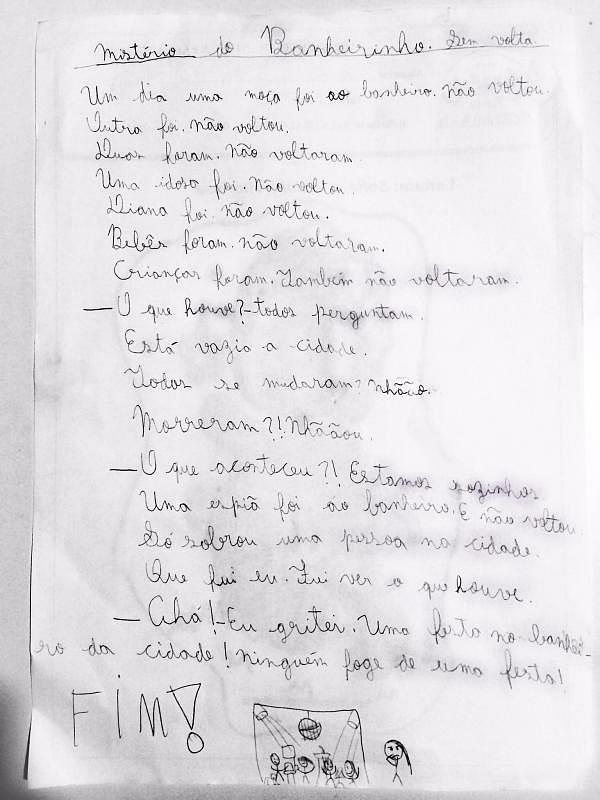 Mistério do Banheirinho. Sem volta.
Um dia uma moça foi ao banheiro. Não voltou.
Outra foi. Não voltou.
Duas foram. Não voltaram.
Uma idosa foi. Não voltou.
Diana foi. Não voltou.
Bebês foram. Não voltaram.
Crianças foram. Também não voltaram.
— O que houve? - todos perguntam.
Está vazia a cidade.
Todos se mudaram? Nhããão.
Morreram?! Nhãããou.
— O que aconteceu?! Estamos sozinhos
Uma espiã foi ao banheiro. E não voltou
Só sobrou uma pessoa na cidade.
Que fui eu. Fui ver o que houve.
— Ahá! - Eu gritei. Uma festa no banhei-
ro da cidade! Ninguém foge de uma festa!
FIM!